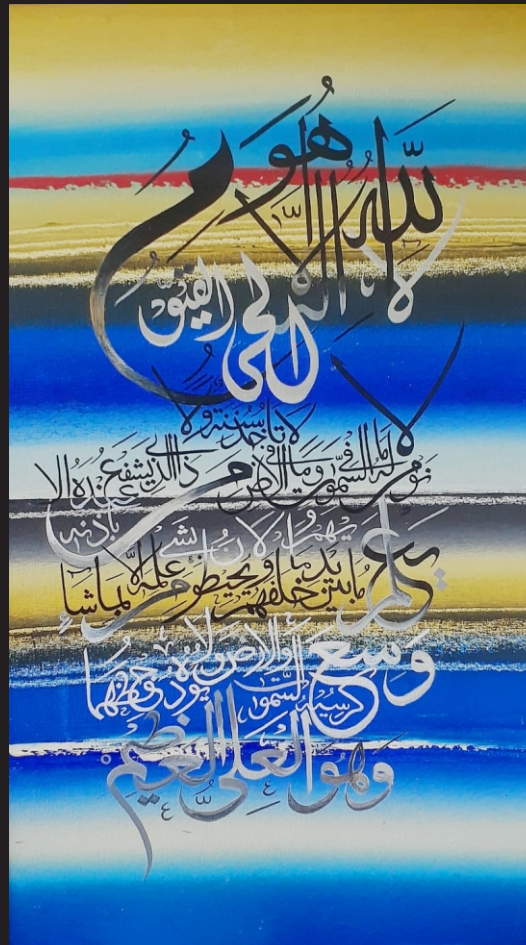 الله لا إله إلا هو
الحي القيوم
لا تأخذه سنة ولا
نوم له ما في السموات وما في الأرض من ذا الذي يشفع عنده إلا
بإذنه
يعلم ما بين أيديهم وما خلفهم ولا يحيطون بشيء من علمه إلا بما شاء
وسع كرسيه السموات والأرض ولا يؤده حفظهما
وهو العلي العظيم